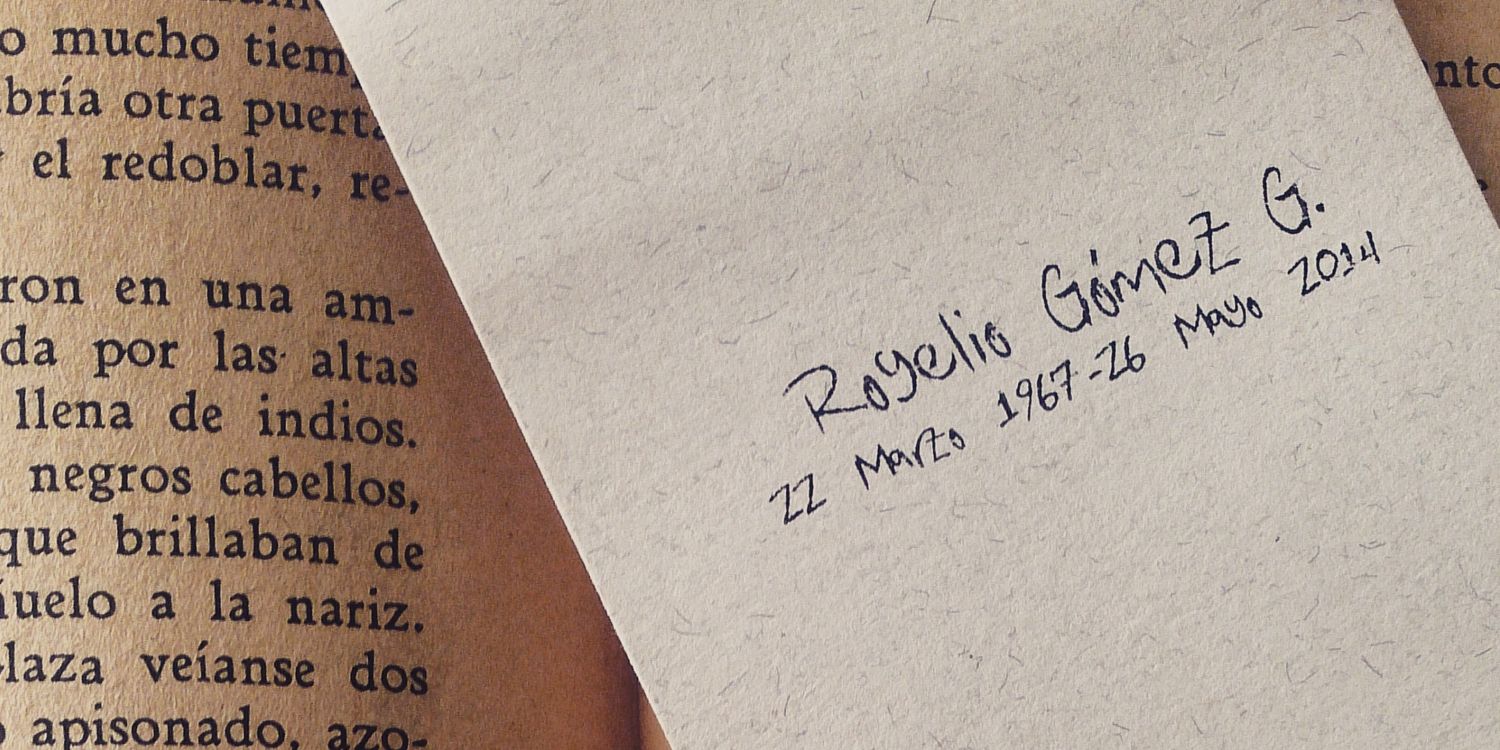 o mucho tiem
bría otra puerta
el redoblar, re-
ron en una am-
da por las altas
llena de indios.
negros cabellos,
que brillaban de
uelo a la nariz.
laza veíanse dos
apisonado, azo-
nto
Rogelio Gómez G.
22 Marzo 1967-26 Mayo 2014